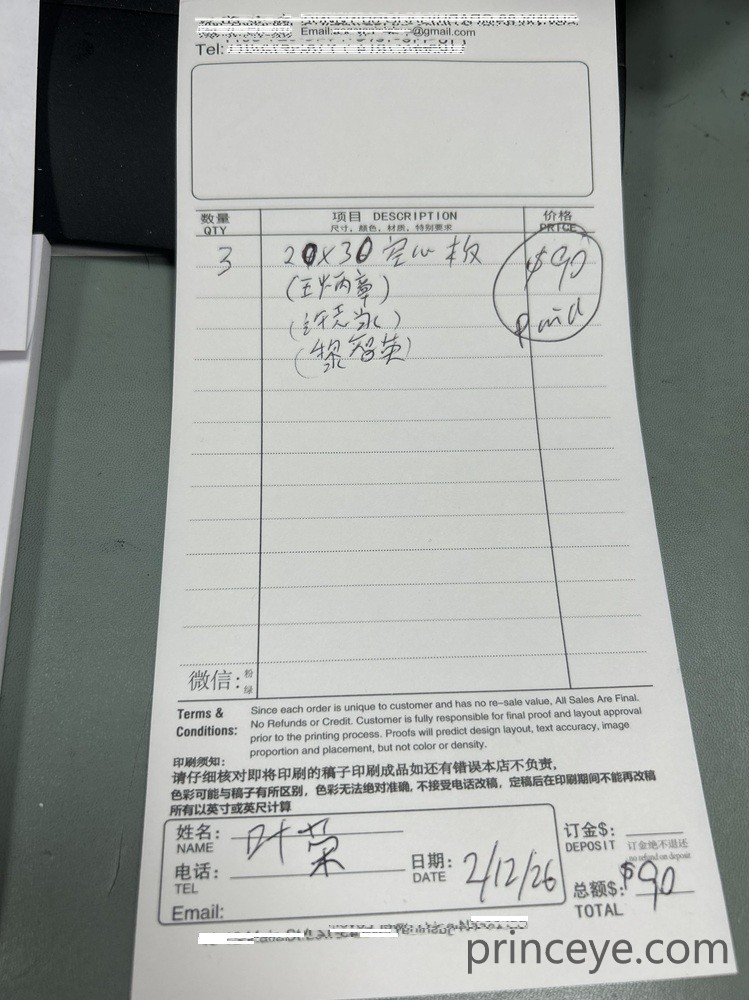 @gmail.com
Tel:
数量 项目 DESCRIPTION 价格
QTY 尺寸，颜色，材质，特别要求 PRICE
3 20X30 空心板 $90
(王炳章) Paid
(许志永)
(黎智英)
微信: 粉
绿
Terms & Conditions:
Since each order is unique to customer and has no re-sale value, All Sales Are Final.
No Refunds or Credit. Customer is fully responsible for final proof and layout approval
prior to the printing process. Proofs will predict design layout, text accuracy, image
proportion and placement, but not color or density.
印刷须知:
请仔细核对即将印刷的稿子印刷成品如还有错误本店不负责，
色彩可能与稿子有所区别，色彩无法绝对准确，不接受电话改稿，定稿后在印刷期间不能再改稿
所有以英寸或英尺计算
姓名: 叶荣
NAME
电话:
TEL
日期: 2/12/26
DATE
Email:
订金$:
DEPOSIT 订金绝不退还
no refund on deposit
总额$: $90
TOTAL
princeye.com